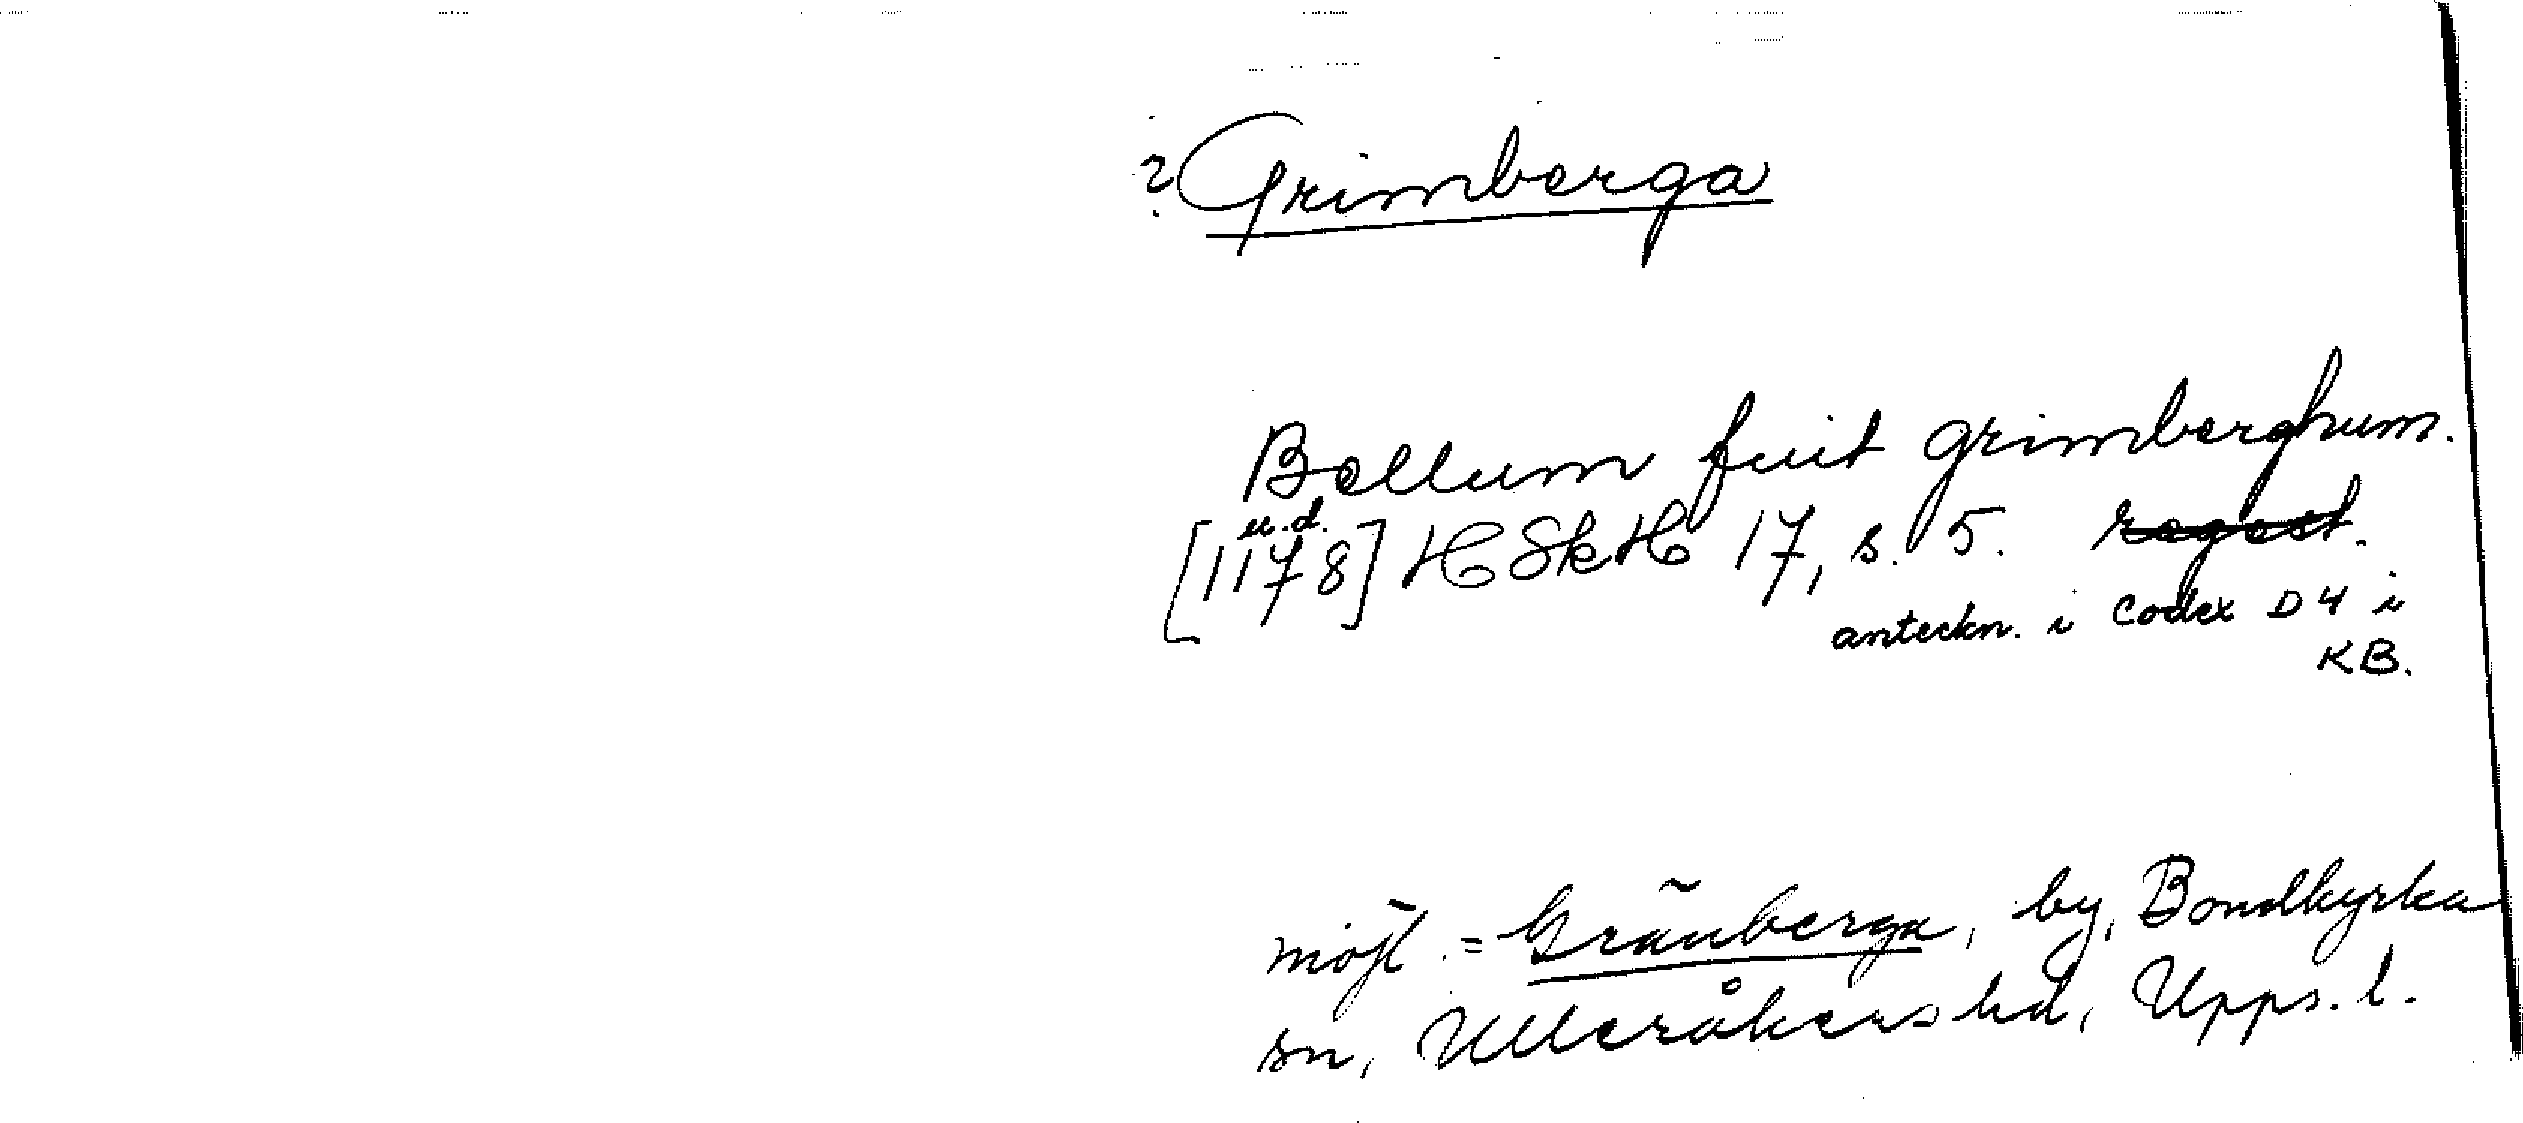 ? Grimberga
Bellum fuit grimberghum.
u.d.
[1178] HSkH 17, s. 5. regest.
anteckn. i Codex D4 i
KB.
möjl. = Gränberga, by, Bondkyrka
sn, Ulleråkers hd, Upps. l.